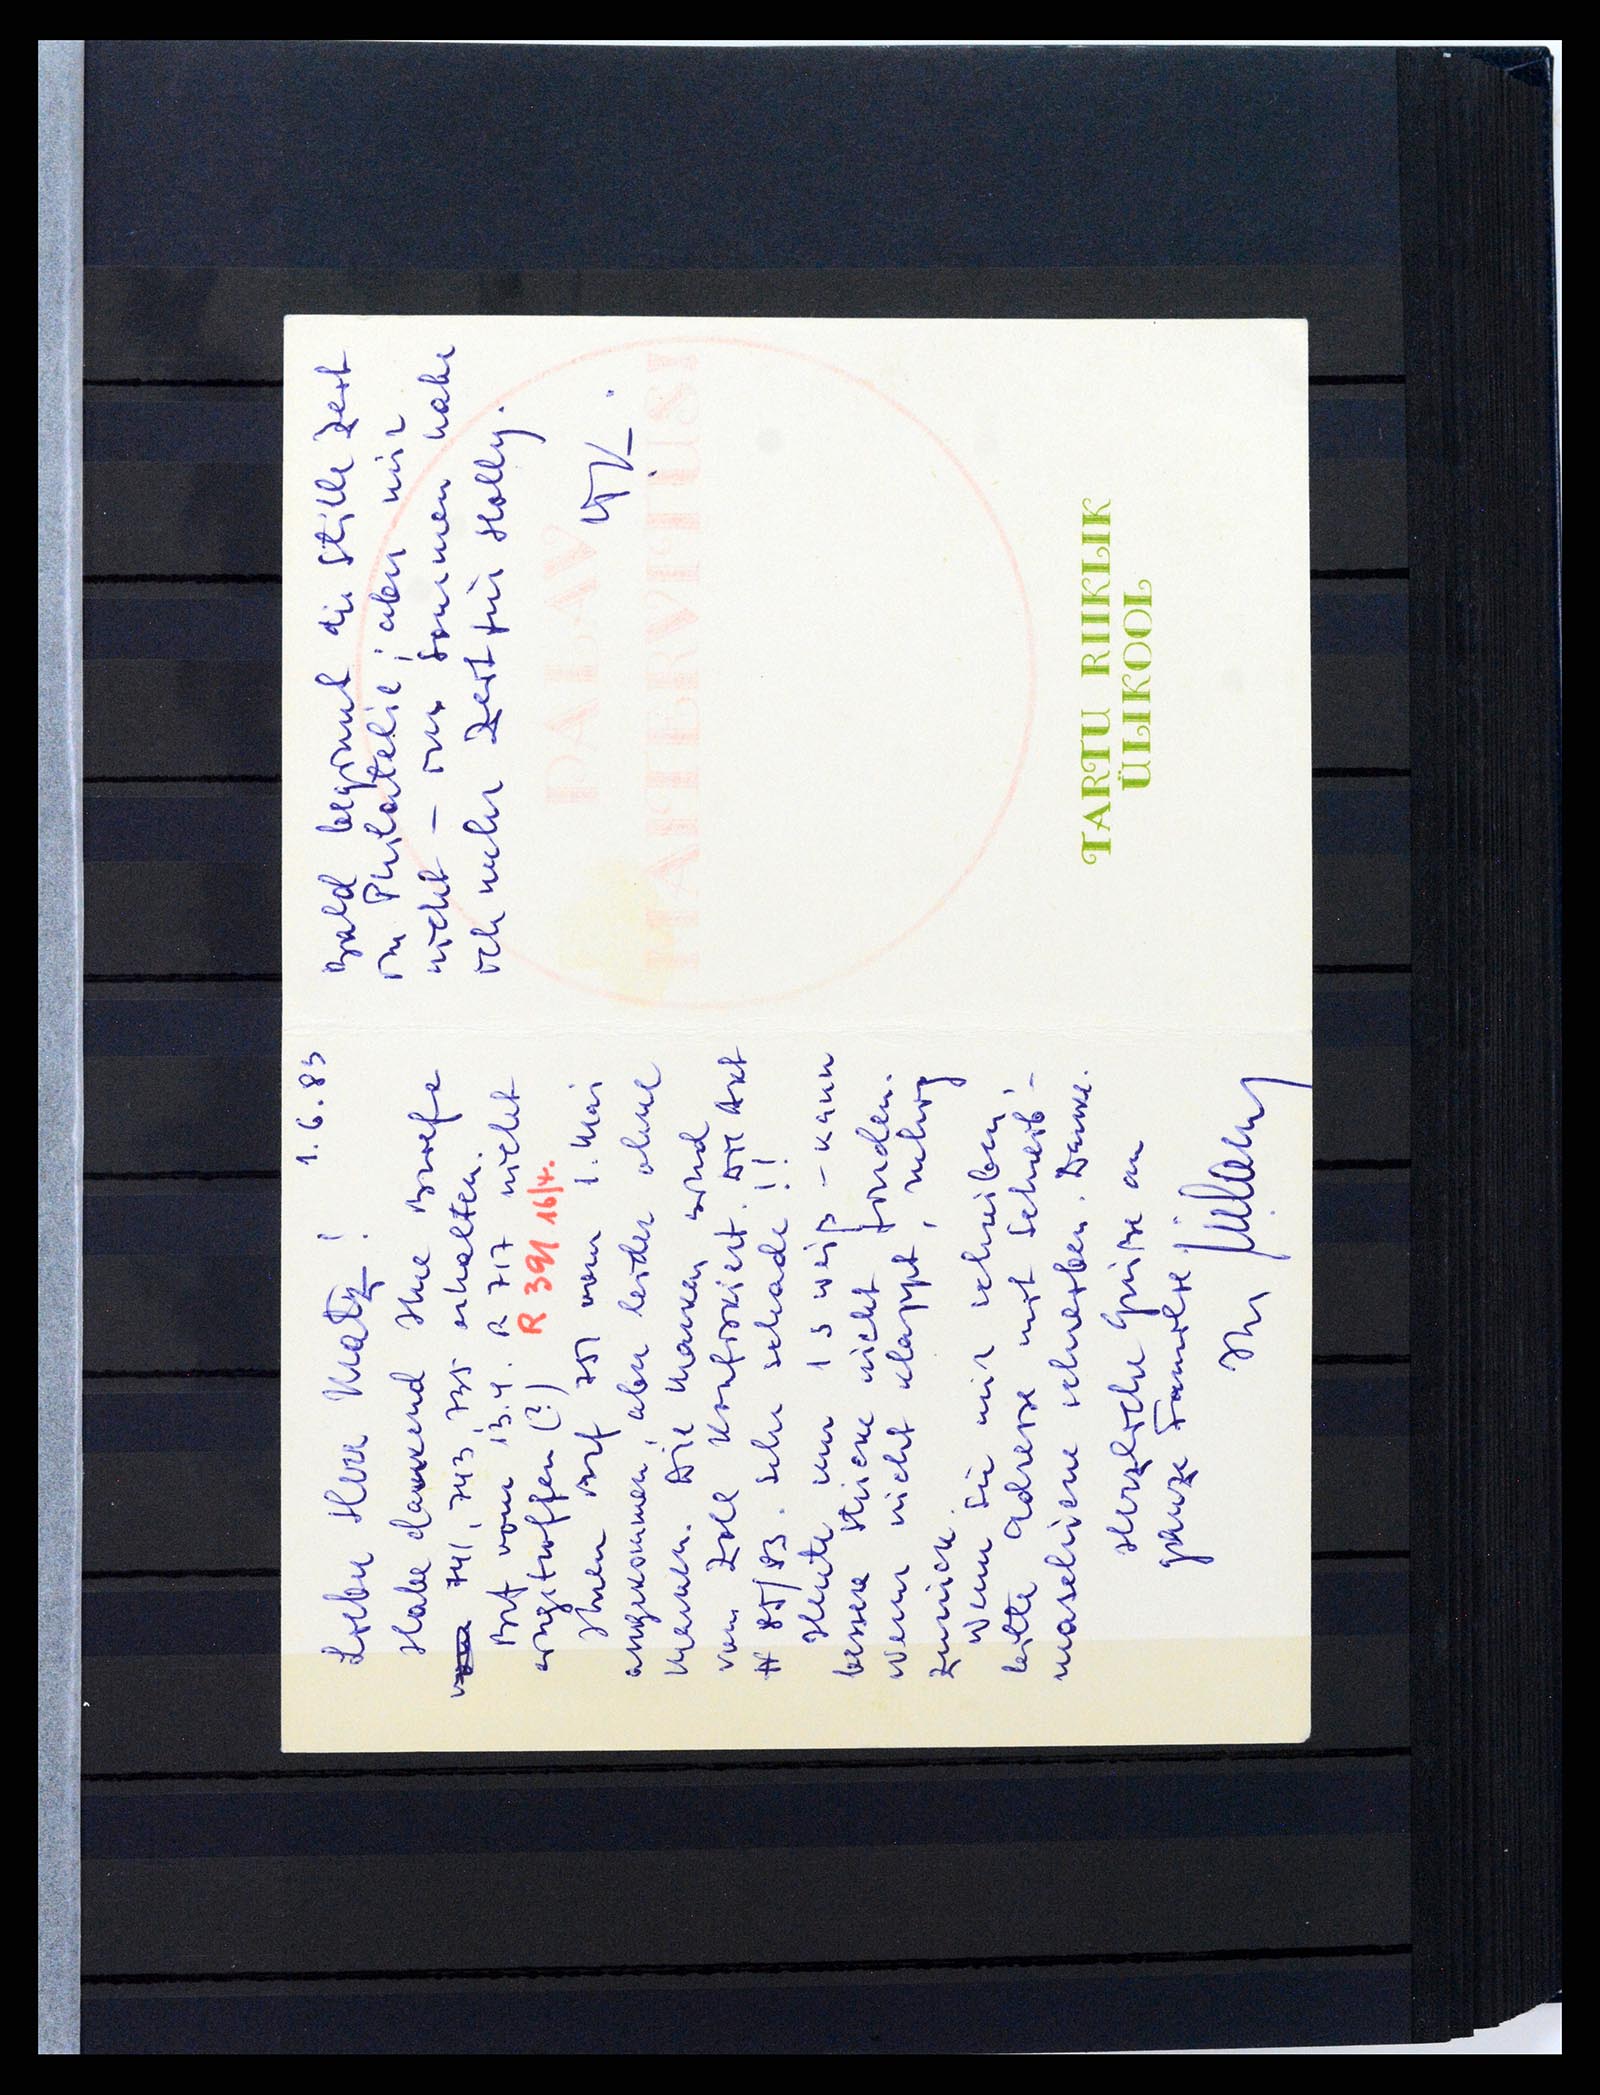 1.6.83
Lieber Herr Matz!
Habe dankend Ihre Briefe
741, 743, 735 erhalten.
Brf vom 13.4. R 717 nicht
eingetroffen (?)
R 391 16/4.
Ihren Brf 751 vom 1. Mai
angekommen, aber leider ohne
Marken. Die Marken sind
vom Zoll konfisziert. Die Akt
# 85/83. Sehr schade!!
Heute nur 1 S weiß – kann
bessere Stücke nicht finden.
Wenn nicht klappt, ruhig
zurück.
Wenn Sie mir schreiben,
bitte Adresse mit Schreib-
maschine schreiben. Danke.
Herzliche Grüße an
ganze Familie
Ihr
Bald beginnt die stille Zeit
in Philatelie, aber mir
nicht – im Sommer habe
ich mehr Zeit für Hobby.
TARTU RIIKLIK
ÜLIKOOL